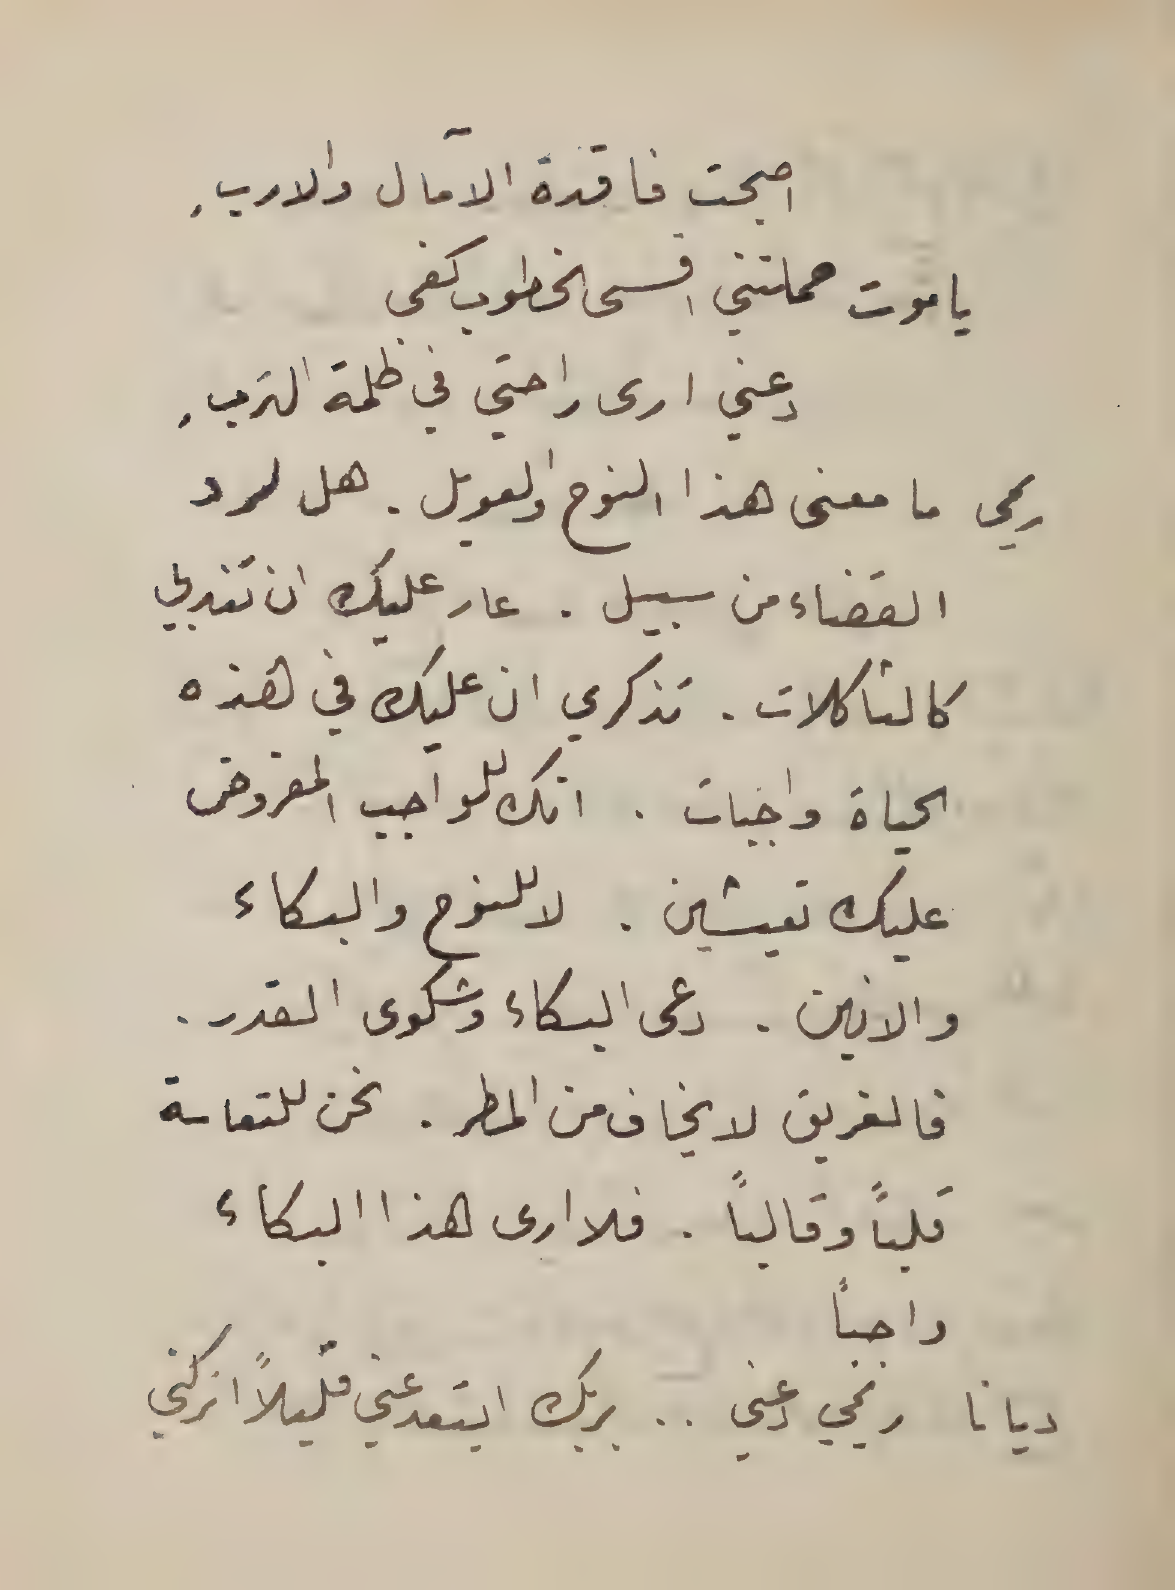 اصبحت فاقدة الآمال والارب
ياموت حملتني اقسى الخطوب كفى
دعني ارى راحتي في ظلمة الترب
ريمي ما معنى هذا النوح والعويل . هل لرد
القضاء من سبيل . عار عليك ان تندبي
كالثاكلات . تذكري ان عليك في هذه
الحياة واجبات . انك للواجب المفروض
عليك تعيشين . لا للنوح والبكاء
والانين . دعى البكاء وشكوى القدر .
فالغريق لا يخاف من المطر . نحن للتعاسة
قلباً وقالباً . فلا ارى هذا البكاء
واجباً
ديانا دعني .. بربك ابتعد عني قليلاً اتركني